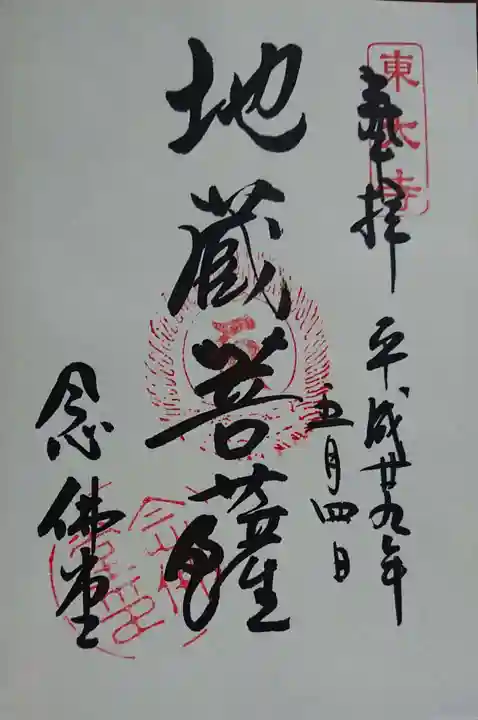 東大寺
奉拝 平成廿九年
五月四日
地蔵菩薩
念佛堂